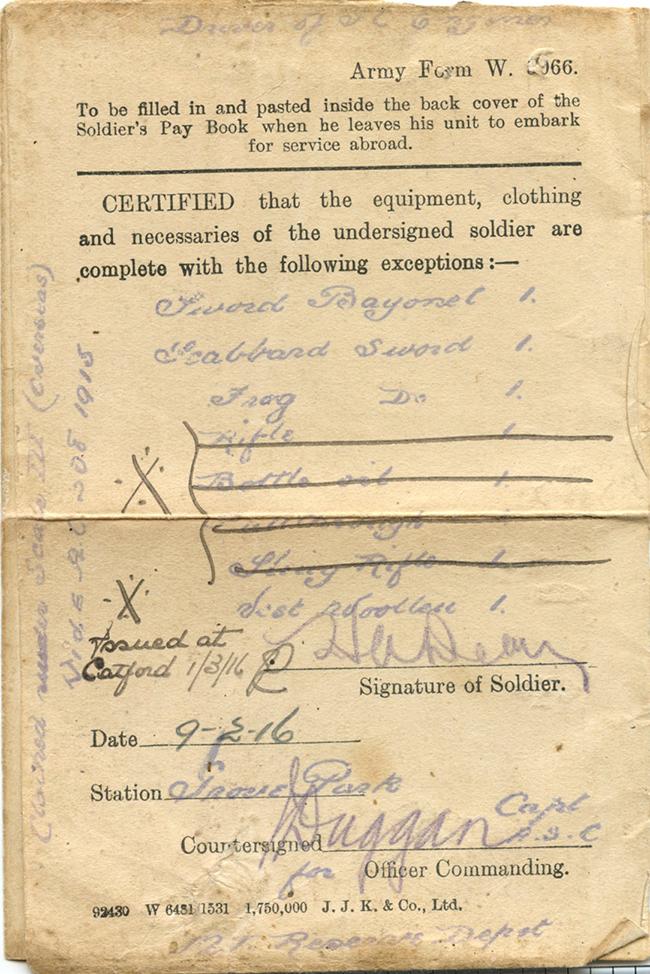 Driver of
Army Form W. 066.
To be filled in and pasted inside the back cover of the
Soldier's Pay Book when he leaves his unit to embark
for service abroad.
CERTIFIED that the equipment, clothing
and necessaries of the undersigned soldier are
complete with the following exceptions:—
Sword Bayonet 1.
Scabbard Sword 1.
Frog Do 1.
Rifle 1
Bottle oil 1.
Pull through 1
Sling Rifle 1.
X
Vest Woollen 1.
X
Issued at
Catford 1/3/16
Signature of Soldier.
Date 9-2-16
Station Grove Park
Capt
A.S.C
Countersigned Duggan
for Officer Commanding.
92430 W 6431/1531 1,750,000 J. J. K. & Co., Ltd.
Reserve Depot
Clothed under Scale III (Overseas)
1915